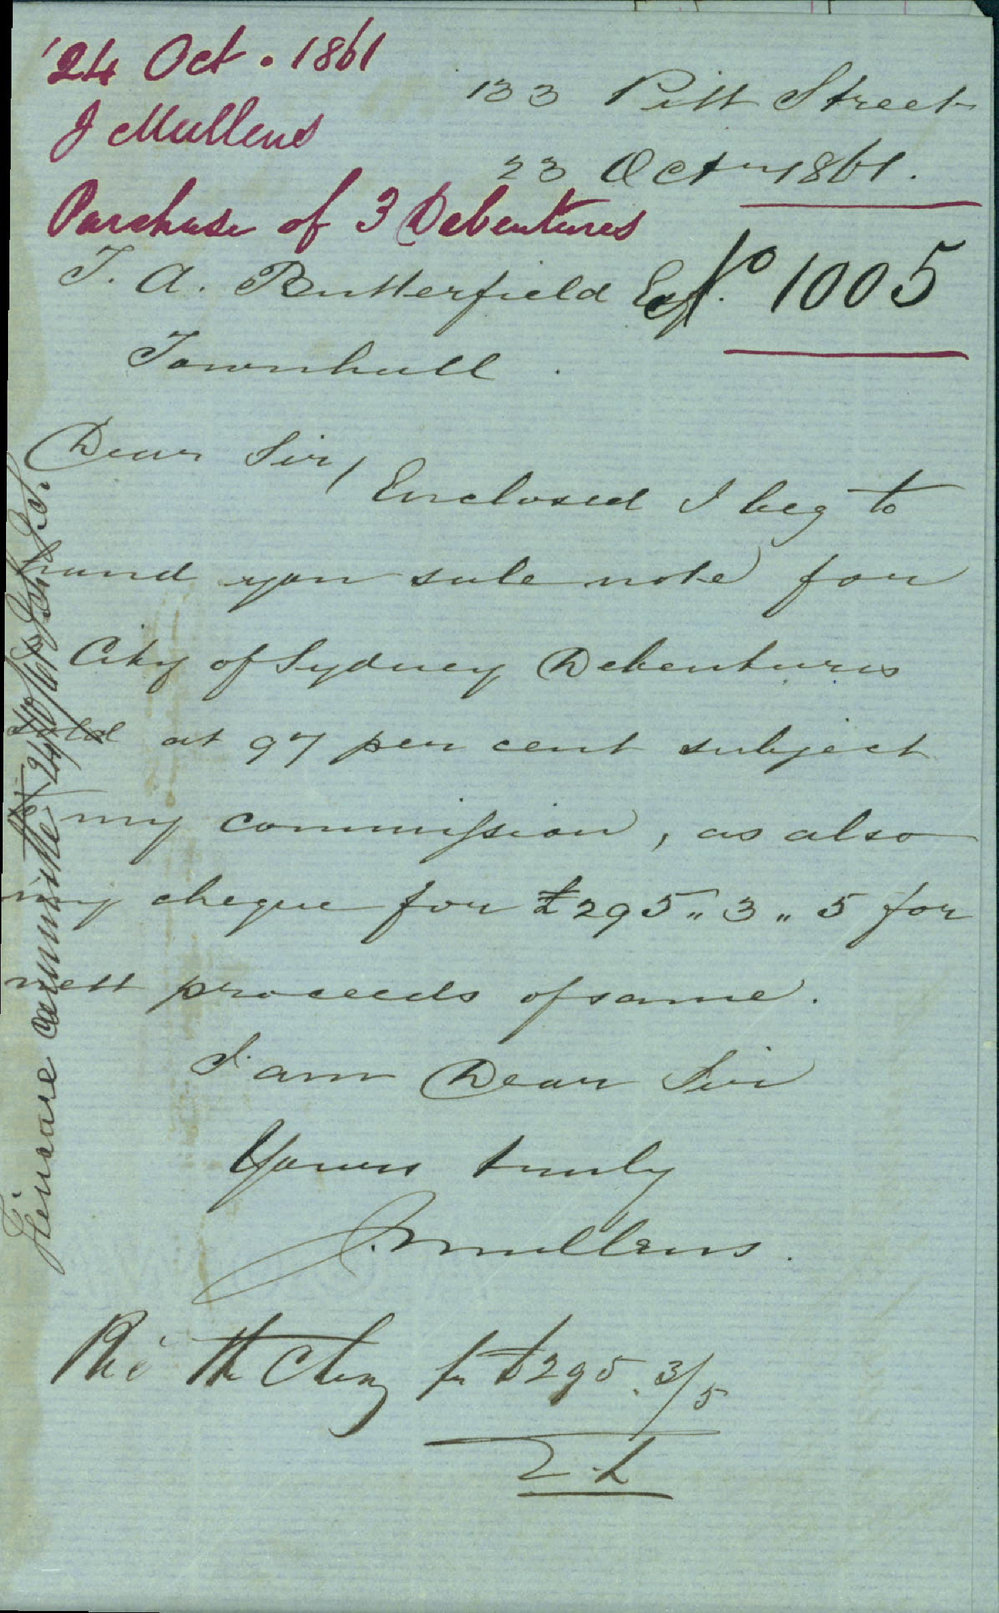 24 Oct. 1861
J Mullens
Purchase of 3 Debentures
133 Pitt Street
23 Octr 1861.
No 1005
T. A. Butterfield Esq
Townhall.
Dear Sir,
Enclosed I beg to
hand you sale note for
City of Sydney Debentures
sold at 97 per cent subject
to my commission, as also
my cheque for £295 „ 3 „ 5 for
nett proceeds of same.
I am Dear Sir
Yours truly
J. Mullens.
the Cheq for £295. 3/5
Finance Committee 24/10/61